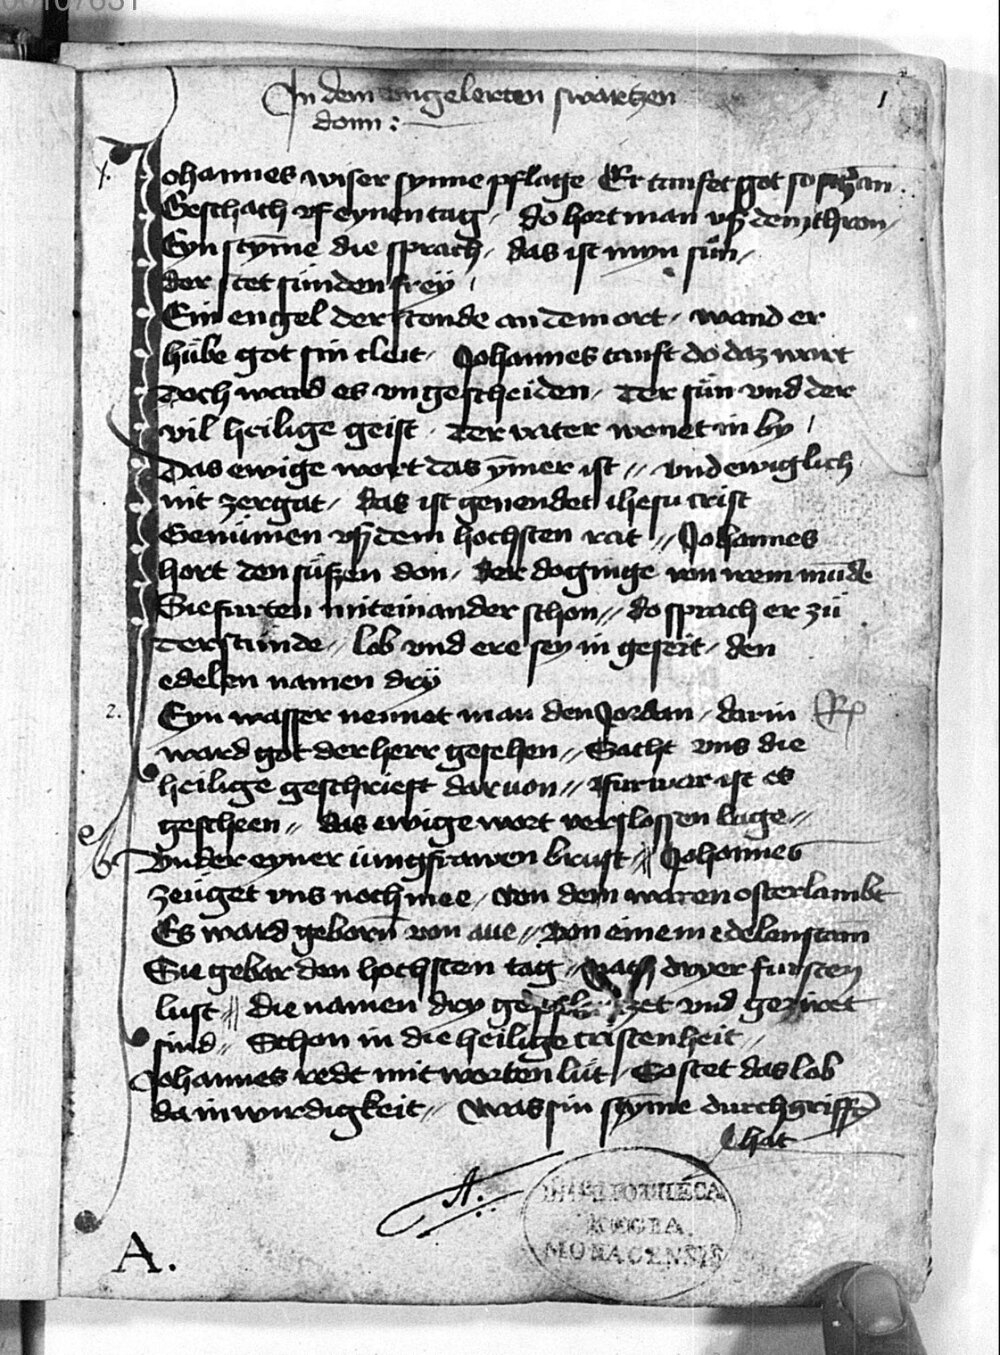 00107631
In dem engelerten swartzen
donn:
1
1.
Johannes wiser synne pflage Er taufet got so schan
Geschach uf eynen tag, do hort man uß dem thron
Eyn styme die sprach, das ist myn sün
der stet sünden frey
Ein engel der stonde an dem ort, wand er
hübe got sin cleit, Johannes tauft do daz wort
Doch ward es ungescheiden, Der sün und der
vil heilige geist, Der vater wonet in by
Das ewige wort das ymer ist, und ewiglich
nit zergat, das ist genendet ihesu crist
Genumen uß dem hochsten rat, Johannes
hort den süßen don, der do ginge von irem munde
Sie furten mit einander schon, do sprach er zü
der stunde, lob und ere sey in geseit, den
edelen namen dry
2. Eyn wasser nennet man den Jordan, darin Rp
ward got der herr gesehen, Sacht uns die
heilige geschrieft daruon, furwar ist es
gescheen, das ewige wort verslossen lage
Under eyner iungfrawen brust, Johannes
zeuget uns noch mee, von dem waren osterlambt
Es ward geborn von aue, Von einem edelen stam
Sie gebar den hochsten tag, Nach dryer fursten
lust, die namen dry und geziret
sind, Schon in die heilige cristenheit
Johannes redt mit worten lüt, So stet das lob
da in wirdigkeit, Was sin styme durchgriffen
hat
A.
BIBLIOTHECA
REGIA
MONACENSIS
A.